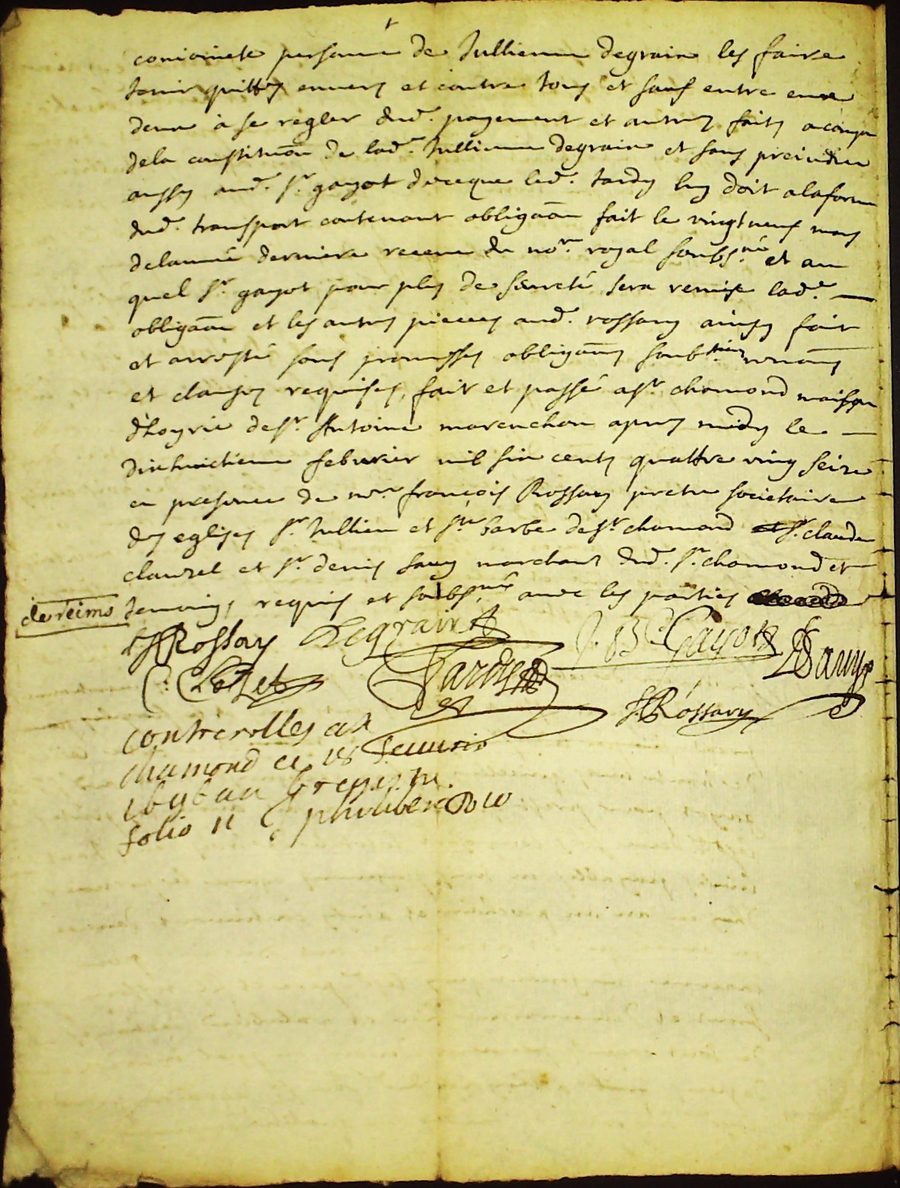 coniointe personne de Jullienne degrain les faire
tenir quittes envers et contre tous et sauf entre eux
deux à se regler dud. payement et autres faits a cause
dela constitution de lad. Jullienne degrain et sans preiudice
aussy aud. Sr. gayot de ce que led. tardy luy doit a la forme
dud. transport contenant obligaon fait le vingt neuf mars
delannée derniere receue du nore. royal soubsné et au
quel Sr. gayot pour plus de seureté sera remise lad.
obligaon et les autres pieces aud. rossary ainsy fait
et arresté sous promesses obligaons
et clauses requises, fait et passé a St. chamond maison
d'hoyrie de Sr. Antoine marenchon apres midy le
dixhuictieme febvrier mil six cents quattre ving seize
en presence de mre françois Rossary pretre societaire
des eglises St. Jullien et Ste barbe de St. chamond Sr. claude
clauzel et Sr. denis sauy marchans dud. St. chamond et
de reims temoins requis et soubsnés avec les parties
F Rossary Degrain J. B. Gayot D Sauy
C. Clozel Tardy
F Rossary
controrolles a St
chamond ce 18 feuvrier
1696 au Gre
folio 11